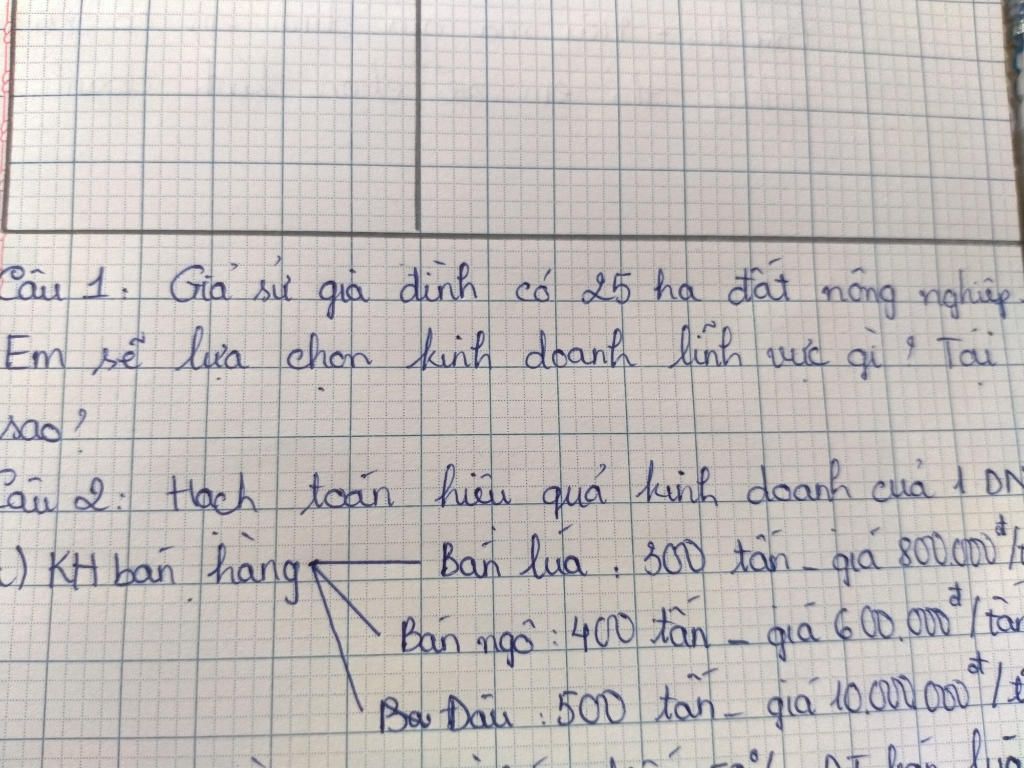 Câu 1: Giả sử gia đình có 25 ha đất nông nghiệp.
Em sẽ lựa chọn kinh doanh lĩnh vực gì? Tại
sao?
Câu 2: Hạch toán hiệu quả kinh doanh của 1 DN
) KH bán hàng Bán lúa : 300 tấn - giá 800.000đ/
Bán ngô : 400 tấn - giá 600.000đ/tấn
Dầu : 500 tấn - giá 10.000.000đ/t